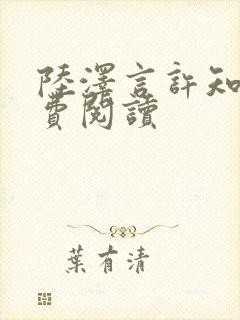 陸澤言許知
費閱讀
葉有清